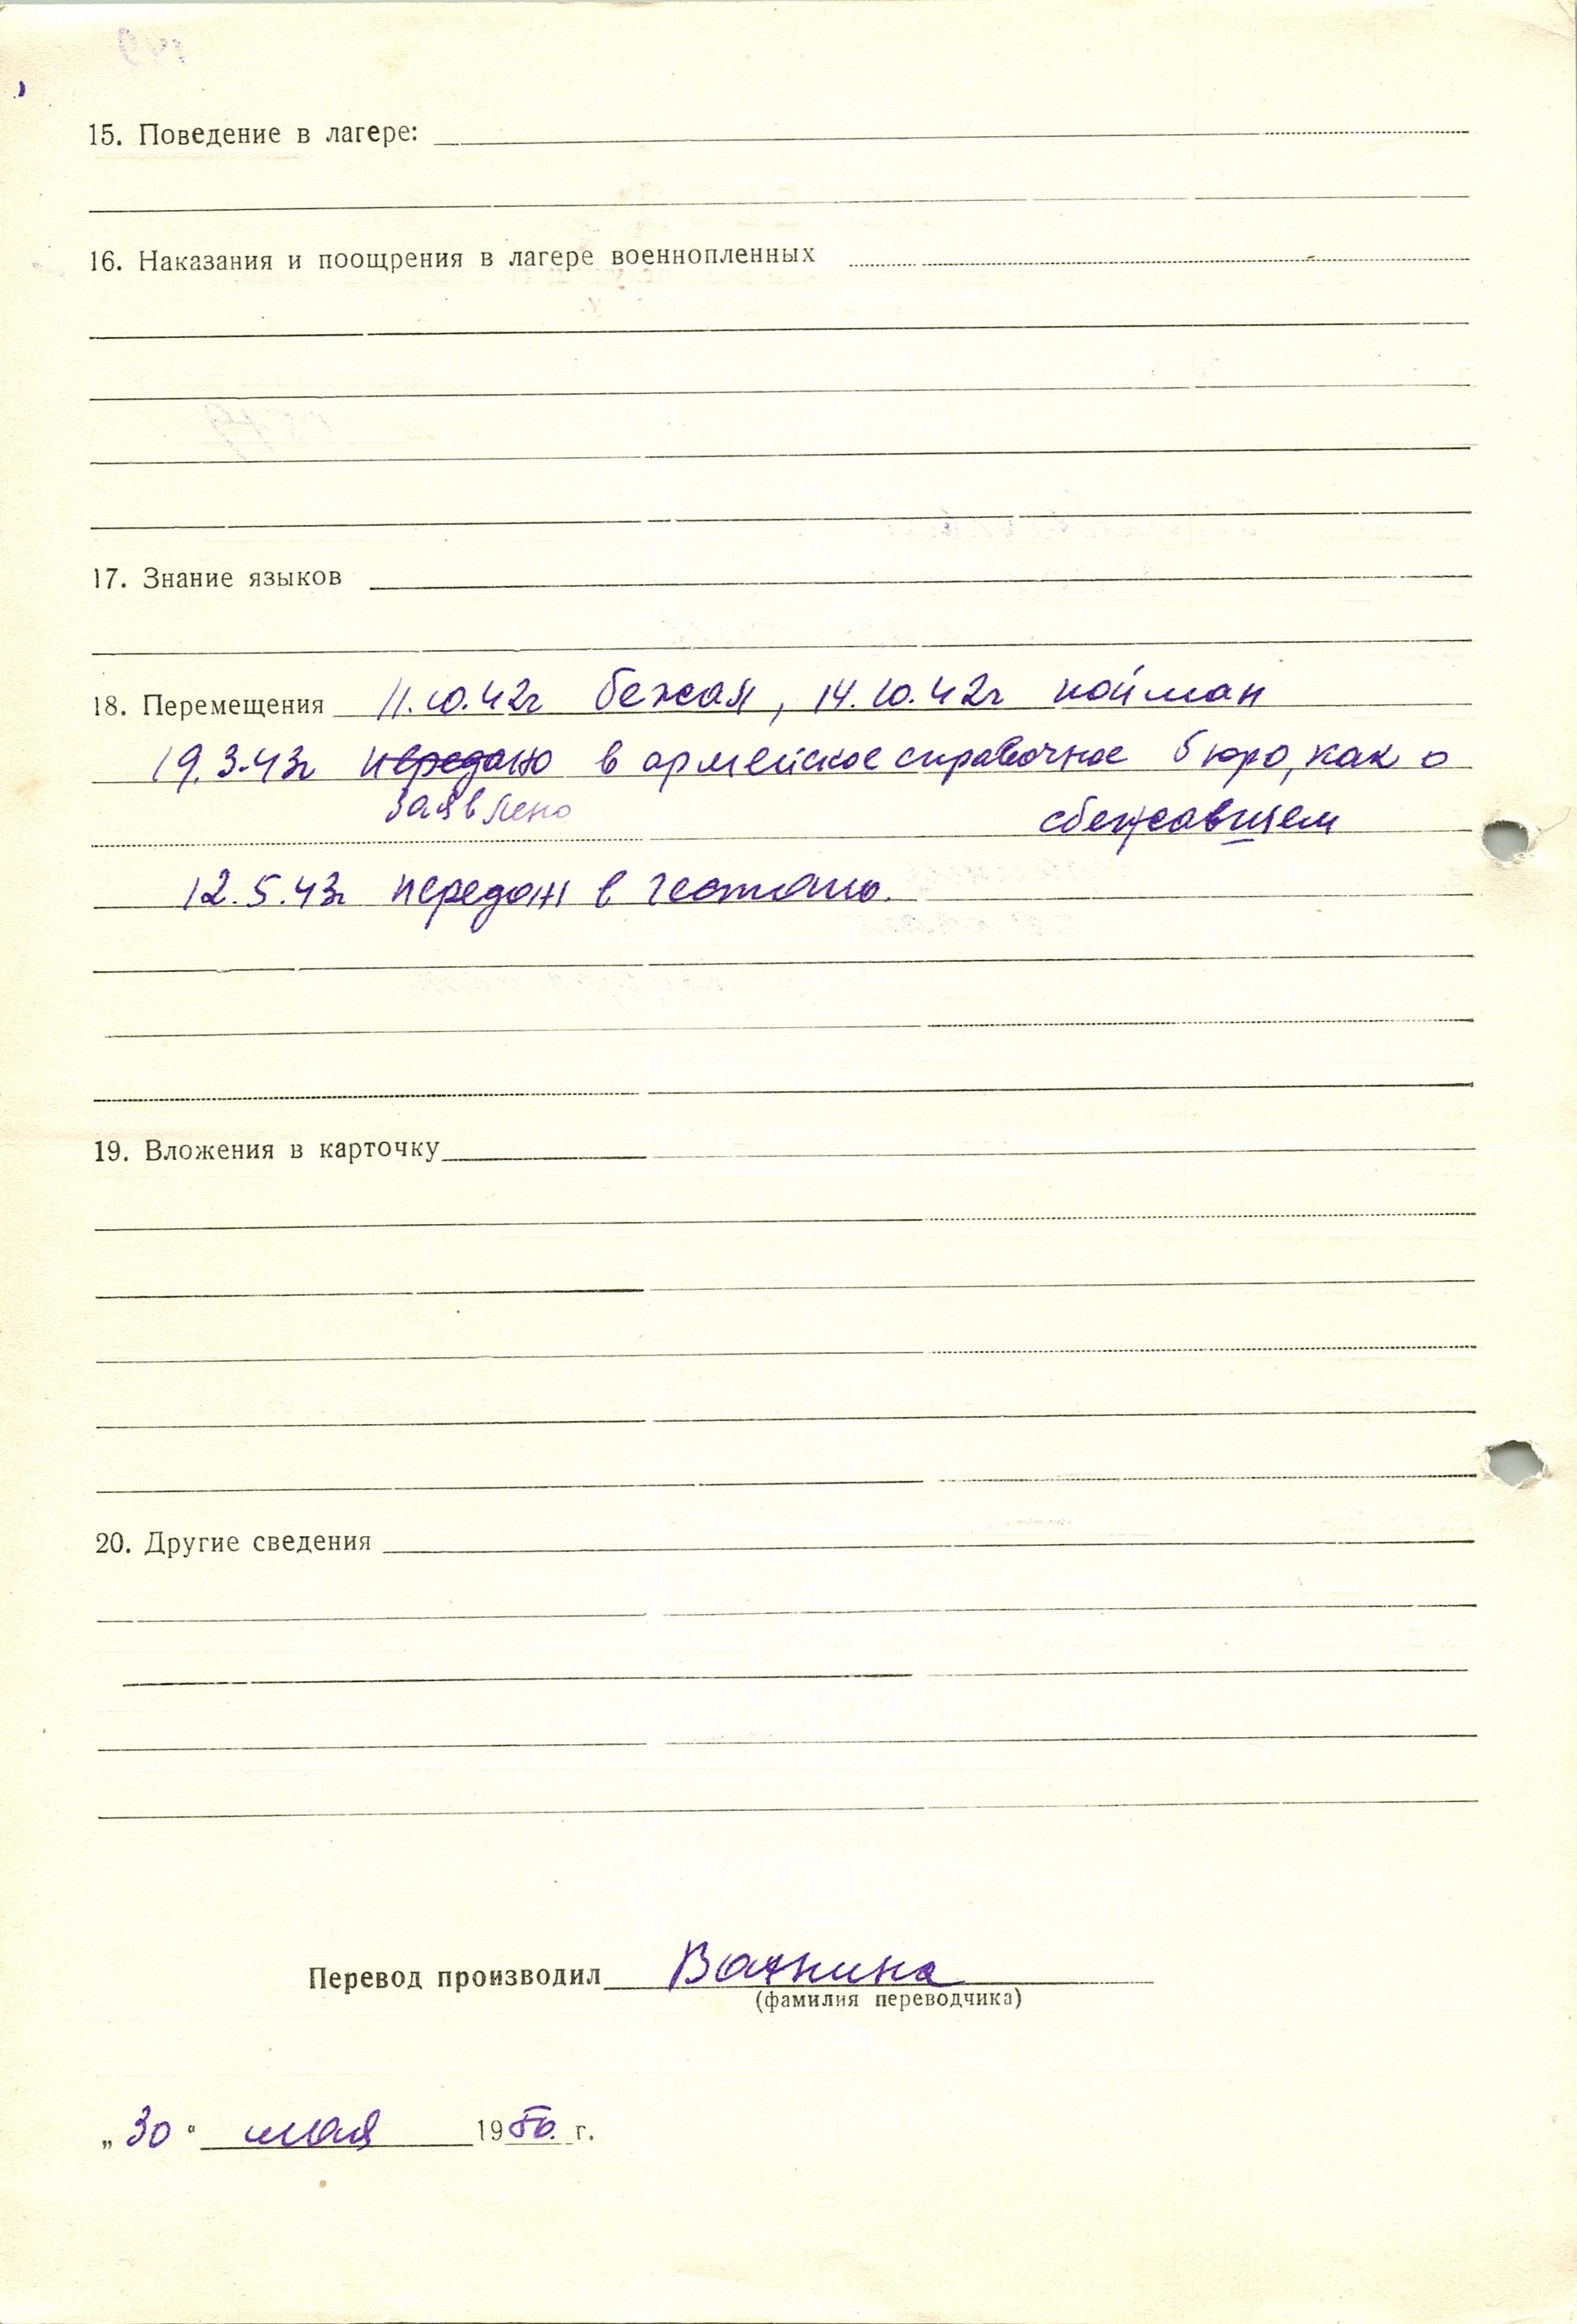 15. Поведение в лагере:
16. Наказания и поощрения в лагере военнопленных
17. Знание языков
18. Перемещения 11.10.42г бежал, 14.10.42г пойман
19.3.43г передано в армейское справочное бюро, как о
заявлено сбежавшем
12.5.43г передан в гестапо.
19. Вложения в карточку
20. Другие сведения
Перевод производил
(фамилия переводчика)
„30“ мая 1950. г.